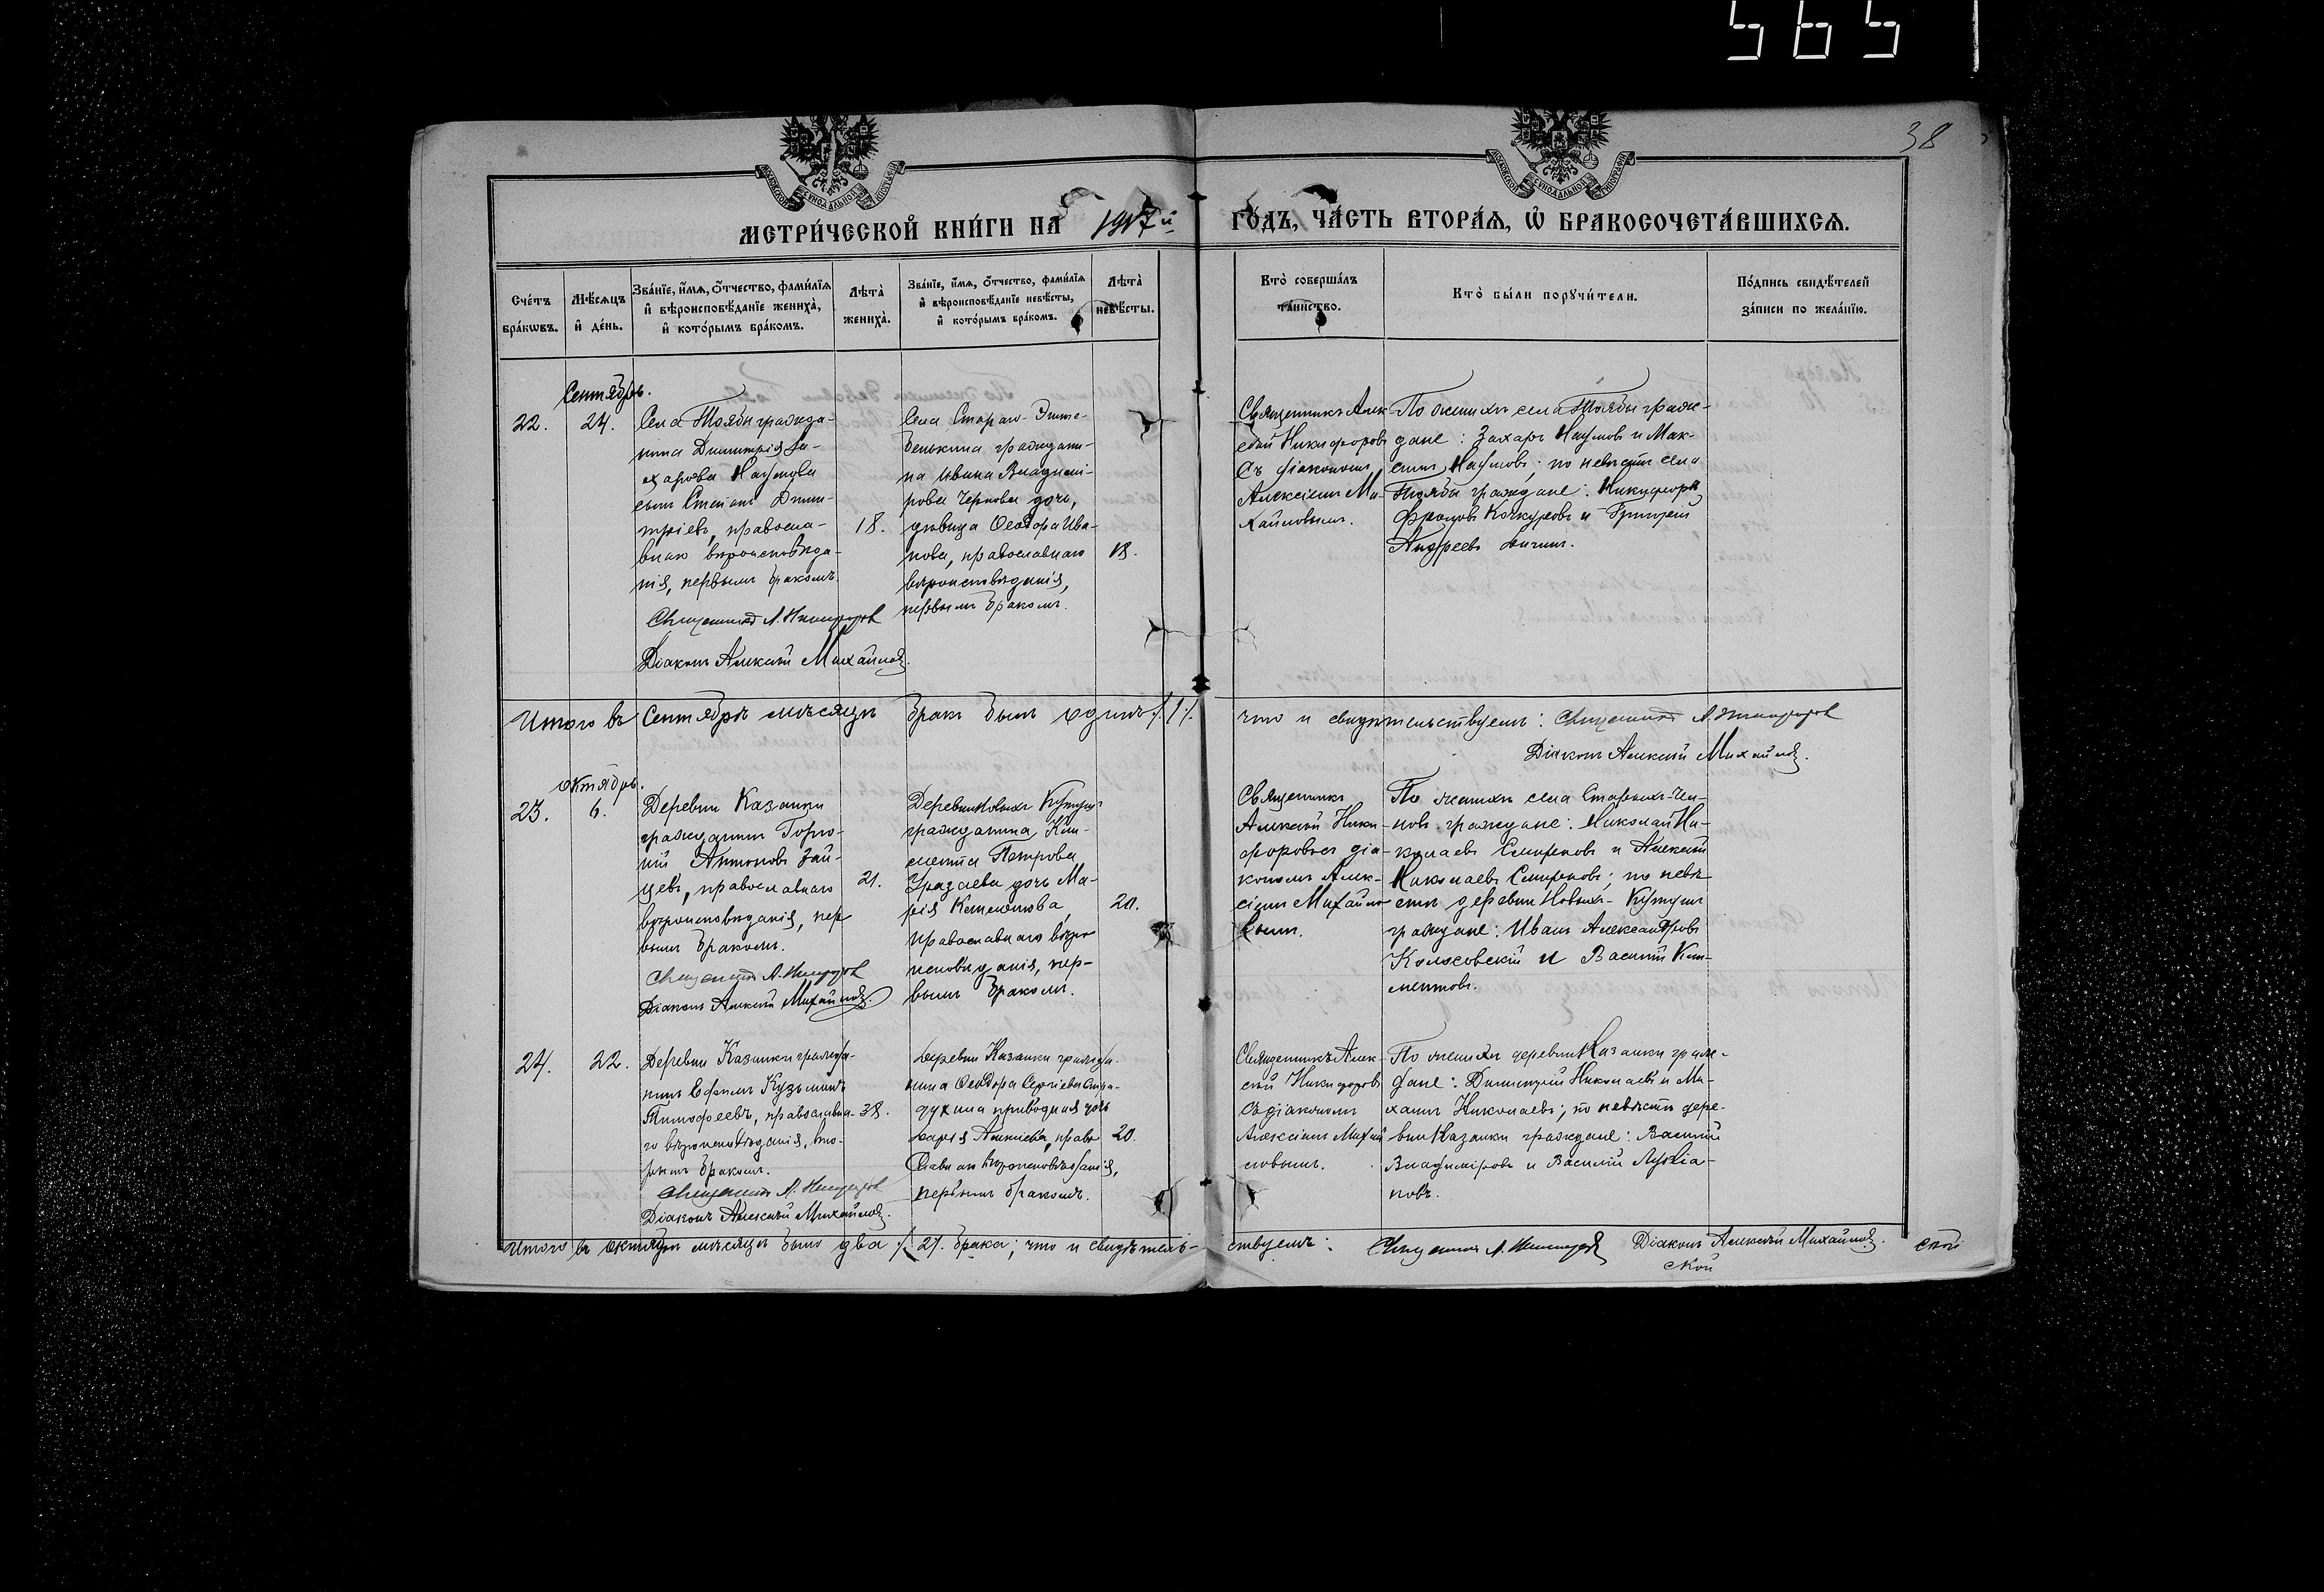 565
38
МЕТРИ́ЧЕСКОЙ КНИ́ГИ НА 1917й ГО́ДЪ, ЧА́СТЬ ВТОРА́Я, Ѡ БРАКОСОЧЕТА́ВШИХСЯ.
Сче́тъ бра́кѡвъ.
Мѣ́сяцъ и де́нь.
Зва́нїе, и́мя, о́тчество, фами́лїя и вѣроисповѣ́данїе жениха̀, и кото́рымъ бра́комъ.
Лѣта̀ жениха̀.
Зва́нїе, и́мя, о́тчество, фами́лїя и вѣроисповѣ́данїе невѣ́сты, и кото́рымъ бра́комъ.
Лѣта̀ невѣ́сты.
Кто̀ соверша́лъ та́инство.
Кто̀ бы́ли порꙋчи́тели.
По́дпись свидѣ́телей за́писи по жела́нїю.
Сентябрь.
22.
24.
Села Тоябы гражда-
нина Димитрія За-
харова Наумова
сынъ Степанъ Дими-
тріевъ, правосла-
внаго вѣроисповѣда-
нія, первымъ бракомъ.
Священникъ А. Никифоровъ
Діаконъ Алексій Михайловъ.
18.
Села Стараго
гражданi-
на Ивана Владимі-
рова Чернова дочь,
дѣвица Ѳеодора Ива-
нова, православнаго
вѣроисповѣданія,
первымъ бракомъ.
18.
Священникъ Алек-
сѣй Никифоровъ
съ діакономъ
Алексіемъ Ми-
хайловымъ.
По женихѣ села Тоябы граж-
дане: Захаръ Наумовъ и Мак-
симъ Наумовъ; по невѣстѣ села
Тоябы граждане: Никифоръ
Фроловъ и Григорій
Андреевъ
Итого въ Сентябрѣ мѣсяцѣ бракъ былъ одинъ /1/. что и свидѣтельствуемъ: Священникъ А. Никифоровъ
Діаконъ Алексій Михайловъ.
Октябрь.
23.
6.
Деревни Казанки
гражданинъ
Антоновъ Зай-
цевъ, православнаго
вѣроисповѣданія, пер-
вымъ бракомъ.
Священникъ А. Никифоровъ
Діаконъ Алексій Михайловъ.
21.
Деревни Новыхъ
гражданина Кли-
мента Петрова
Уразаева дочь Ма-
рія Климентова,
православнаго вѣро-
исповѣданія, пер-
вымъ бракомъ.
20.
Священникъ
Алексій Ники-
форовъ съ діа-
кономъ Алек-
сіемъ Михайло-
вымъ.
По женихѣ села Старыхъ
граждане: Николай Ни-
колаевъ Семеновъ и Алексій
Николаевъ Семеновъ; по невѣ-
стѣ деревни Новыхъ
граждане: Иванъ Александровъ
и Василій Кли-
ментовъ.
24.
22.
Деревни Казанки гражда-
нинъ Ефимъ Кузьминъ
Тимофеевъ, православна-
го вѣроисповѣданія, вто-
рымъ бракомъ.
Священникъ А. Никифоровъ
Діаконъ Алексій Михайловъ.
38.
Деревни Казанки гражда-
нина Ѳеодора Сергіева
приводная дочь
Дарія Алексіева, право-
славнаго вѣроисповѣданія,
первымъ бракомъ.
20.
Священникъ Алек-
сѣй Никифоровъ
съ діакономъ
Алексіемъ Михай-
ловымъ.
По женихѣ деревни Казанки граж-
дане: Димитрій Николаевъ и Ми-
хаилъ Николаевъ; по невѣстѣ дере-
вни Казанки граждане: Василій
Владиміровъ и Василій Лукіа-
новъ.
Итого въ октябрѣ мѣсяцѣ было два /2/. брака; что и свидѣтель-
ствуемъ: Священникъ А. Никифоровъ Діаконъ Алексій Михайловъ.
ской